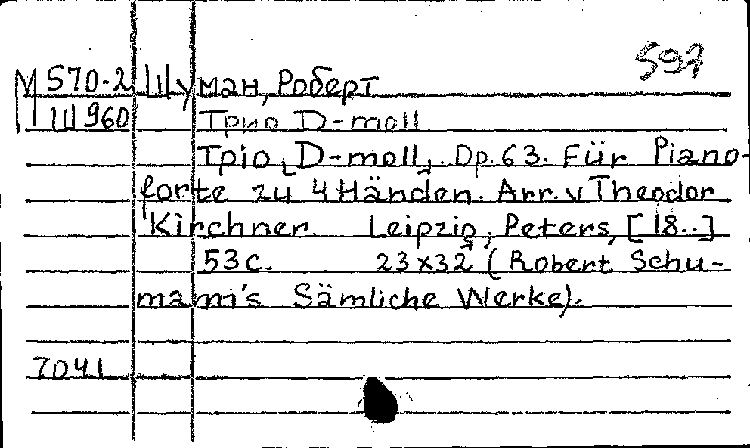 597
М 570-2 Шуман, Роберт
Ш 960 Трио D-moll
Тріо [D-moll]. Op. 63. Für Piano-
forte zu 4 Händen. Arr. v Theodor
Kirchner. Leipzig, Peters, [18..]
53с. 23x32 (Robert Schu-
mann's Sämliche Werke).
7041